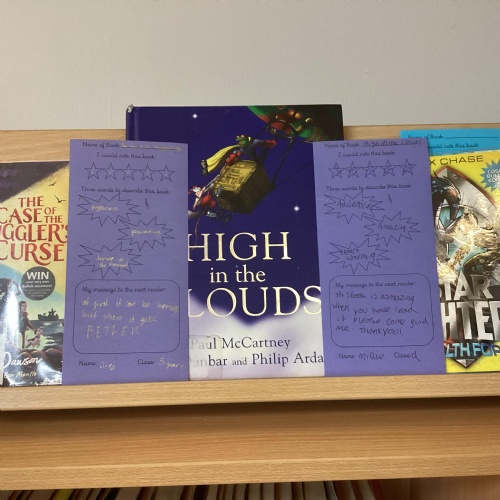 THE
CASE OF
THE
GGLER'S
CURSE
WIN
Dawson
Name of Book
I would rate this book:
Three words to describe this book:
My message to the next reader:
at first it can be boring
but then it gets
BETTER
Name:
Class: 5
HIGH
in the
LOUDS
Paul McCartney
unbar and Philip Arda
Name of Book: High in the Clouds
I would rate this book:
Three words to describe this book:
Amazing
My message to the next reader:
this book is amazing
when you have read
it please come find
me Thankyou!
Name: millie Class: 
Name of Book
X CHASE
STAR
GHTER
LTH FOR